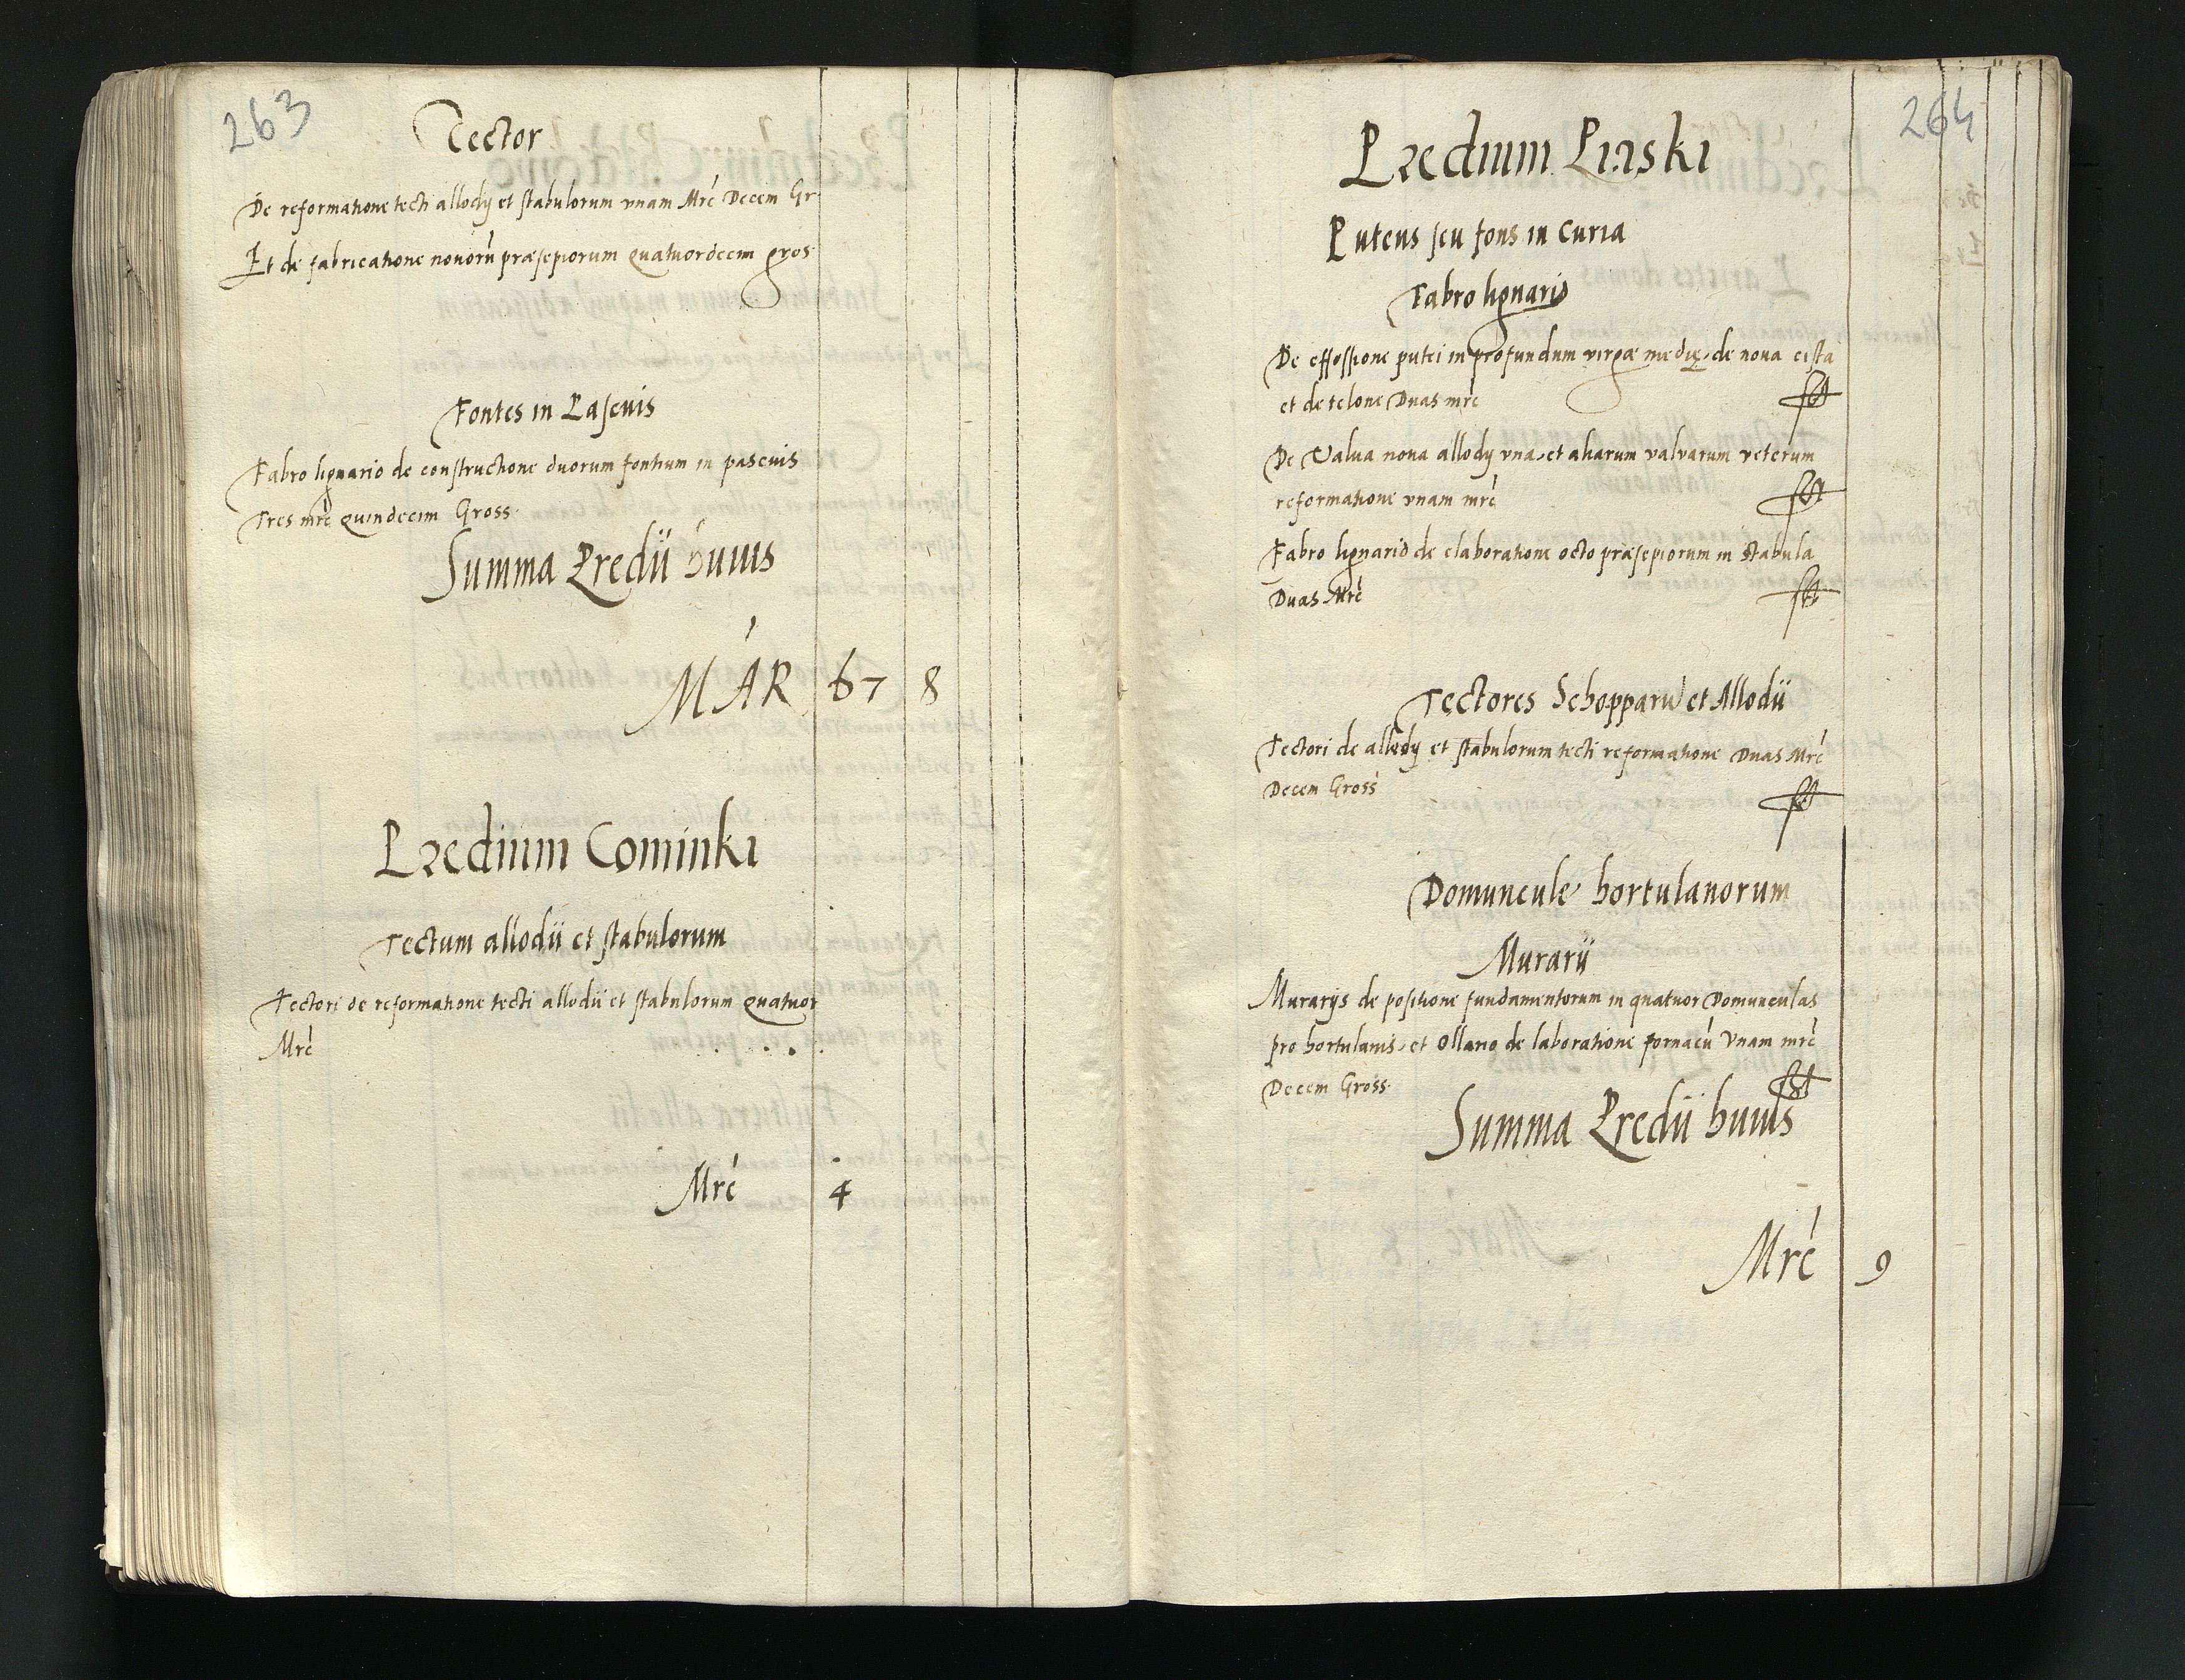 263
Tector
De reformatione tecti allodÿ et stabulorum vnam Mrć Decem Gr
Et de fabricatione nouorū præsepiorum quatuordecim gros
Fontes in Pascuis
Fabro lignario de constructione duorum fontium in pascuis
Tres mrć quindecim Gross
Summa Predii huius
MAR 67 8
Predium Cominki
Tectum allodii et stabulorum
Tectori de reformatione tecti allodii et stabulorum quatuor
Mrć
Mrć 4
264
Predium Linski
Puteus seu fons in curia
Fabro lignario
De effossione putei in profundum virgæ mediæ, de noua cista
et de telone Duas mrć
De Valua noua allodÿ vna, et aliarum valvarum veterum
reformatione vnam mrć
Fabro lignario de elaboratione octo præsepiorum in stabula
Duas Mrć
Tectores Schopparū et Allodii
Tectori de allodÿ et stabulorum tecti reformatione Duas Mrć
Decem Gross
Domuncule hortulanorum
Murarii
Murarÿs de positione fundamentorum in quatuor Domunculas
pro hortulanis, et Ollario de laboratione fornacū Vnam mrć
Decem Gross
Summa Predii huius
Mrć 9